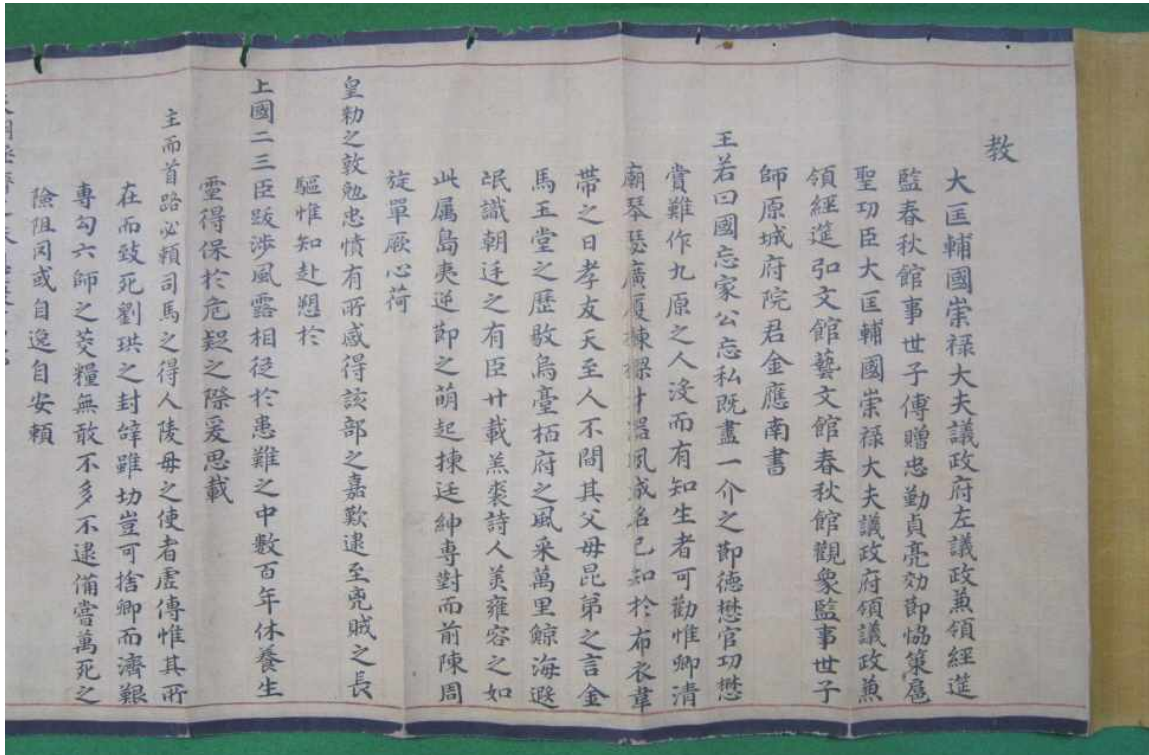 教
大匡輔國崇祿大夫議政府左議政兼領經筵
監春秋館事世子傅贈忠勤貞亮效節協策扈
聖功臣大匡輔國崇祿大夫議政府領議政兼
領經筵弘文館藝文館春秋館觀象監事世子
師原城府院君金應南書
王若曰國忘家公忘私既盡一介之節德懋官功懋
賞難作九原之人沒而有知生者可勸惟卿清
廟琴瑟廣厦棟樑才器夙成名已知於布衣韋
帶之日孝友天至人不間其父母昆弟之言金
馬玉堂之歷敭烏臺栢府之風采萬里鯨海遐
氓識朝廷之有臣廿載羔裘詩人美雍容之如
此属島夷逆節之萌起揀廷紳專對而前陳周
旋單厥心荷
皇勑之敦勉忠憤有所感得該部之嘉歎逮至兇賊之長
驅惟知赴愬於
上國二三臣跋涉風露相從於患難之中數百年休養生
靈得保於危疑之際爰思載
主而首路必頼司馬之得人陵母之使者虛傳惟其所
在而致死劉珙之封辭雖切豈可捨卿而濟艱
專勾六師之茭糧無敢不多不逮備嘗萬死之
險阻罔或自逸自安頼